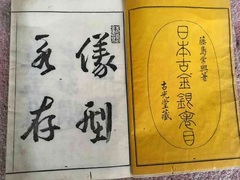 藤島常興著
日本古金銀寓目
古光堂藏
儀型
永存